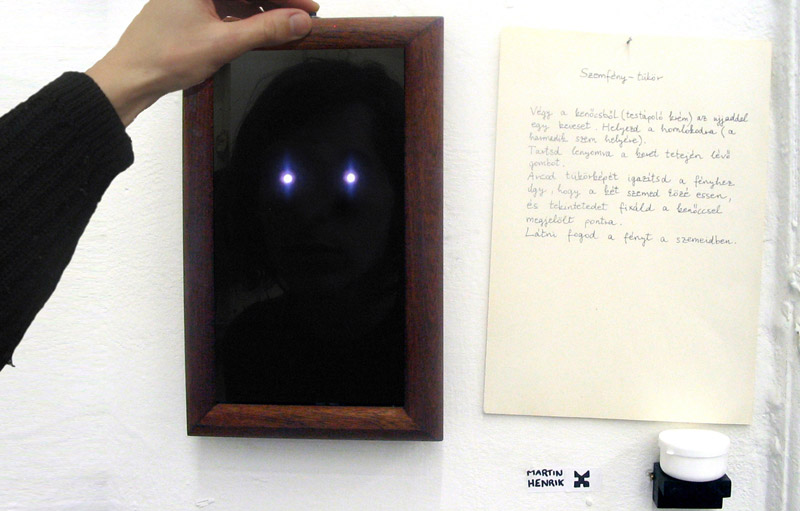 Szemfény-tükör
Végy a kenőcsből (testápoló krém) az ujjaddal
egy keveset. Helyezd a homlokodra (a
harmadik szem helyére).
Tartsd lenyomva a keret tetején lévő
gombot.
Arcod tükörképét igazítsd a fényhez
úgy, hogy a két szemed közé essen,
és tekintetedet fixáld a kenőccsel
megjelölt pontra.
Látni fogod a fényt a szemeidben.
MARTIN
HENRIK